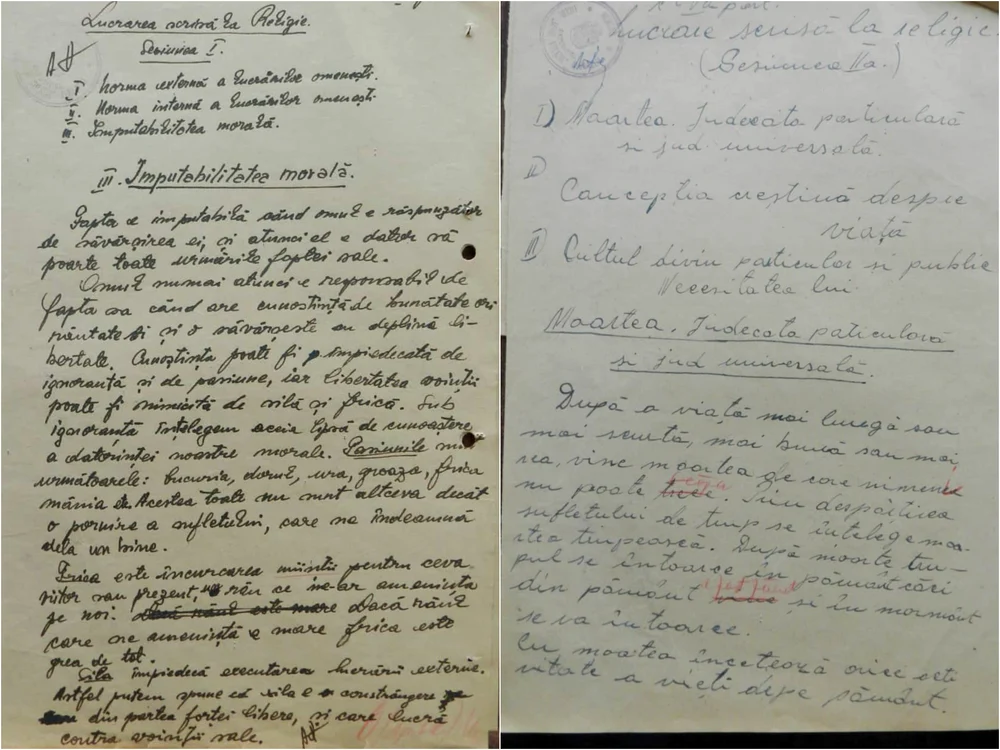 Lucrarea scrisă la Religie.
Sesiunea I.
I. Norma externă a lucrărilor omenești.
II. Norma internă a lucrărilor omenești.
III. Imputabilitatea morală.
III. Imputabilitatea morală.
Fapta e imputabilă când omul e răspunzător
de săvârșirea ei, și atunci el e dator să
poarte toate urmările faptei sale.
Omul numai atunci e responsabil de
fapta sa când are cunoștință de bunătate ori
răutate ei și o săvârșește cu deplină li-
bertate. Cunoștința poate fi împiedecată de
ignoranță și de pasiune, iar libertatea voinții
poate fi nimicită de silă și frică. Sub
ignoranță înțelegem aceia lipsă de cunoaștere
a datorinței noastre morale. Pasiunile
următoarele: bucuria, dorul, ura, groaza, frica
mânia etc. Acestea toate nu sunt altceva decât
o pornire a sufletului, care ne îndeamnă
dela un bine.
Frica este încurcarea minții pentru ceva
viitor sau prezent, rău ce ne-ar amenința
pe noi. Dacă răul este mare Dacă răul
care ne amenință e mare frica este
grea de tot.
Sila împiedecă executarea lucrării externe.
Astfel putem spune că sila e o constrângere
din partea forței libere, și care lucră
contra voinții sale.
lucrare scrisă la religie.
(Sesiunea IIa.)
I) Moartea. Judecata particulară
și jud universală.
II)
Concepția creștină despre
viață
III) Cultul divin particular și public
Necesitatea lui.
Moartea. Judecata paticulară
și jud universală.
După a viață mai lungă sau
mai scurtă, mai bună sau mai
rea, vine moartea de care nimenea
nu poate scăpa. Prin despărțirea
sufletului de trup se înțelege moa-
rtea trupească. După moarte, tru-
pul se întoarce în pământ căci
din pământ și în mormânt
se va întoarce.
Cu moartea încetează orice acti
vitate a vieți depe pământ.